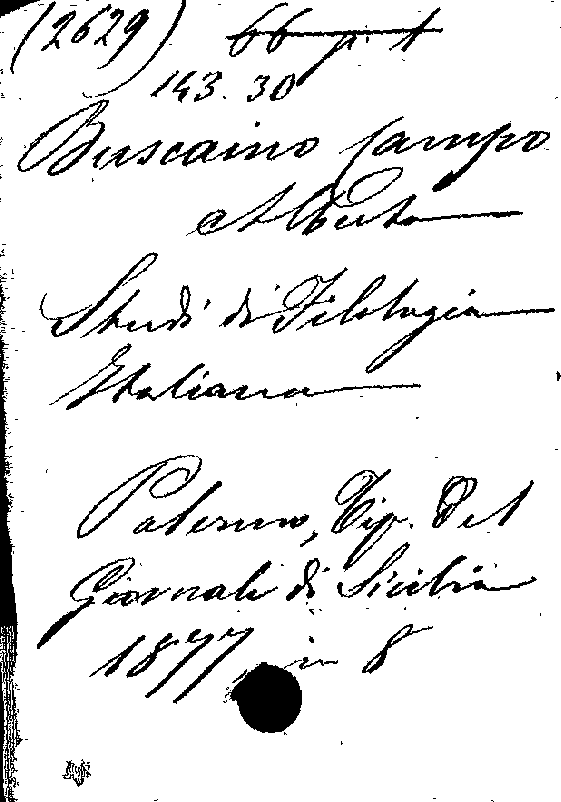 (2629) 66 p. 1
143.30
Buscaino Campo
Alberto
Studi di Filologia
Italiana
Palermo, Tip. Del
Giornale di Sicilia
1877 in 8